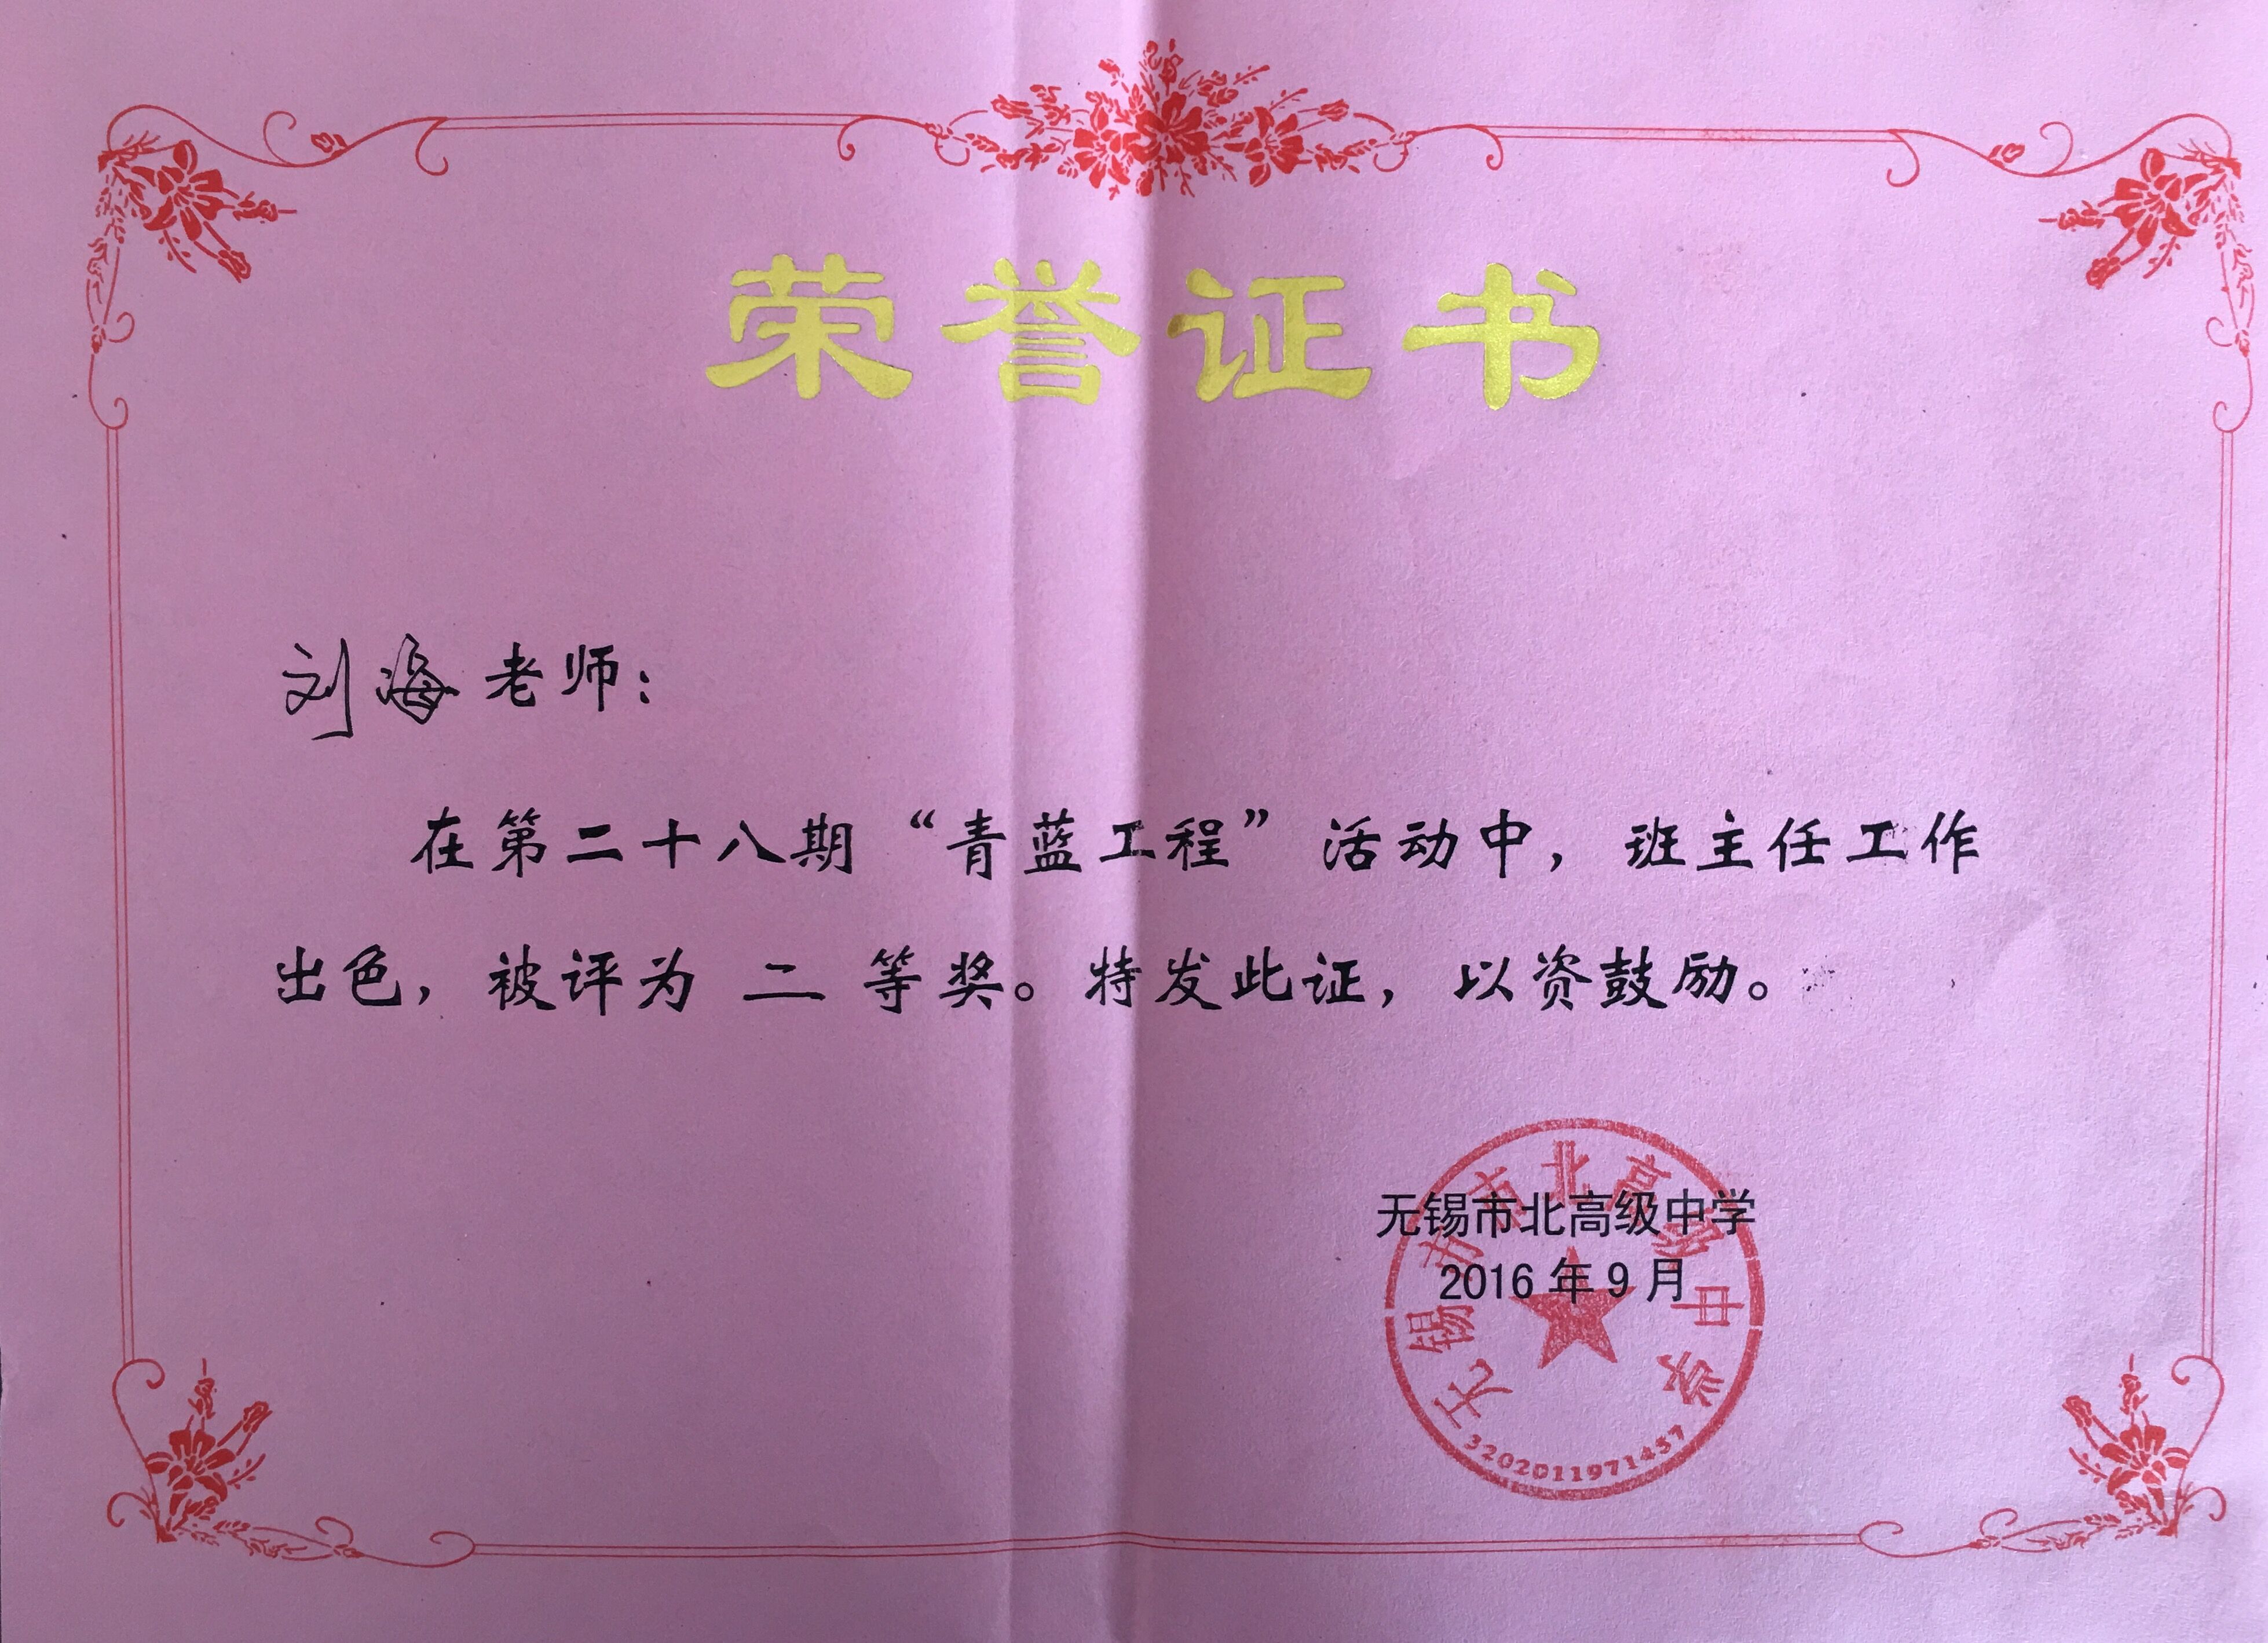 荣誉证书
刘海老师：
在第二十八期“青蓝工程”活动中，班主任工作
出色，被评为 二 等奖。特发此证，以资鼓励。
无锡市北高级中学
2016年9月
无锡市市北高级中学
3202011971457